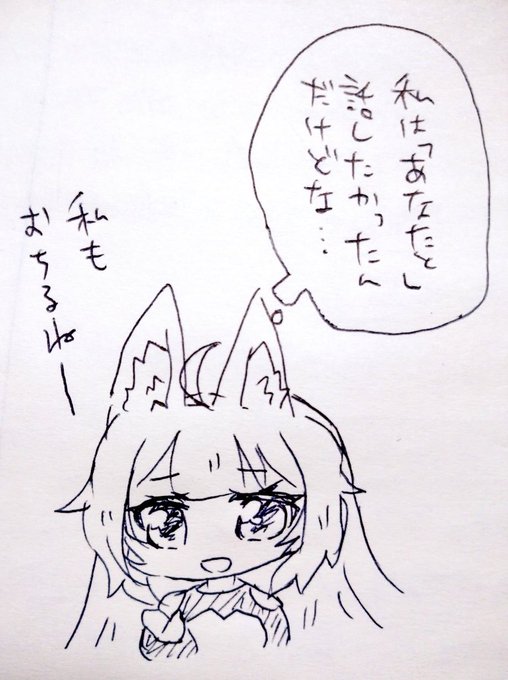 私は「あなたと」
話したかったん
だけどな…
私も
おちるねー